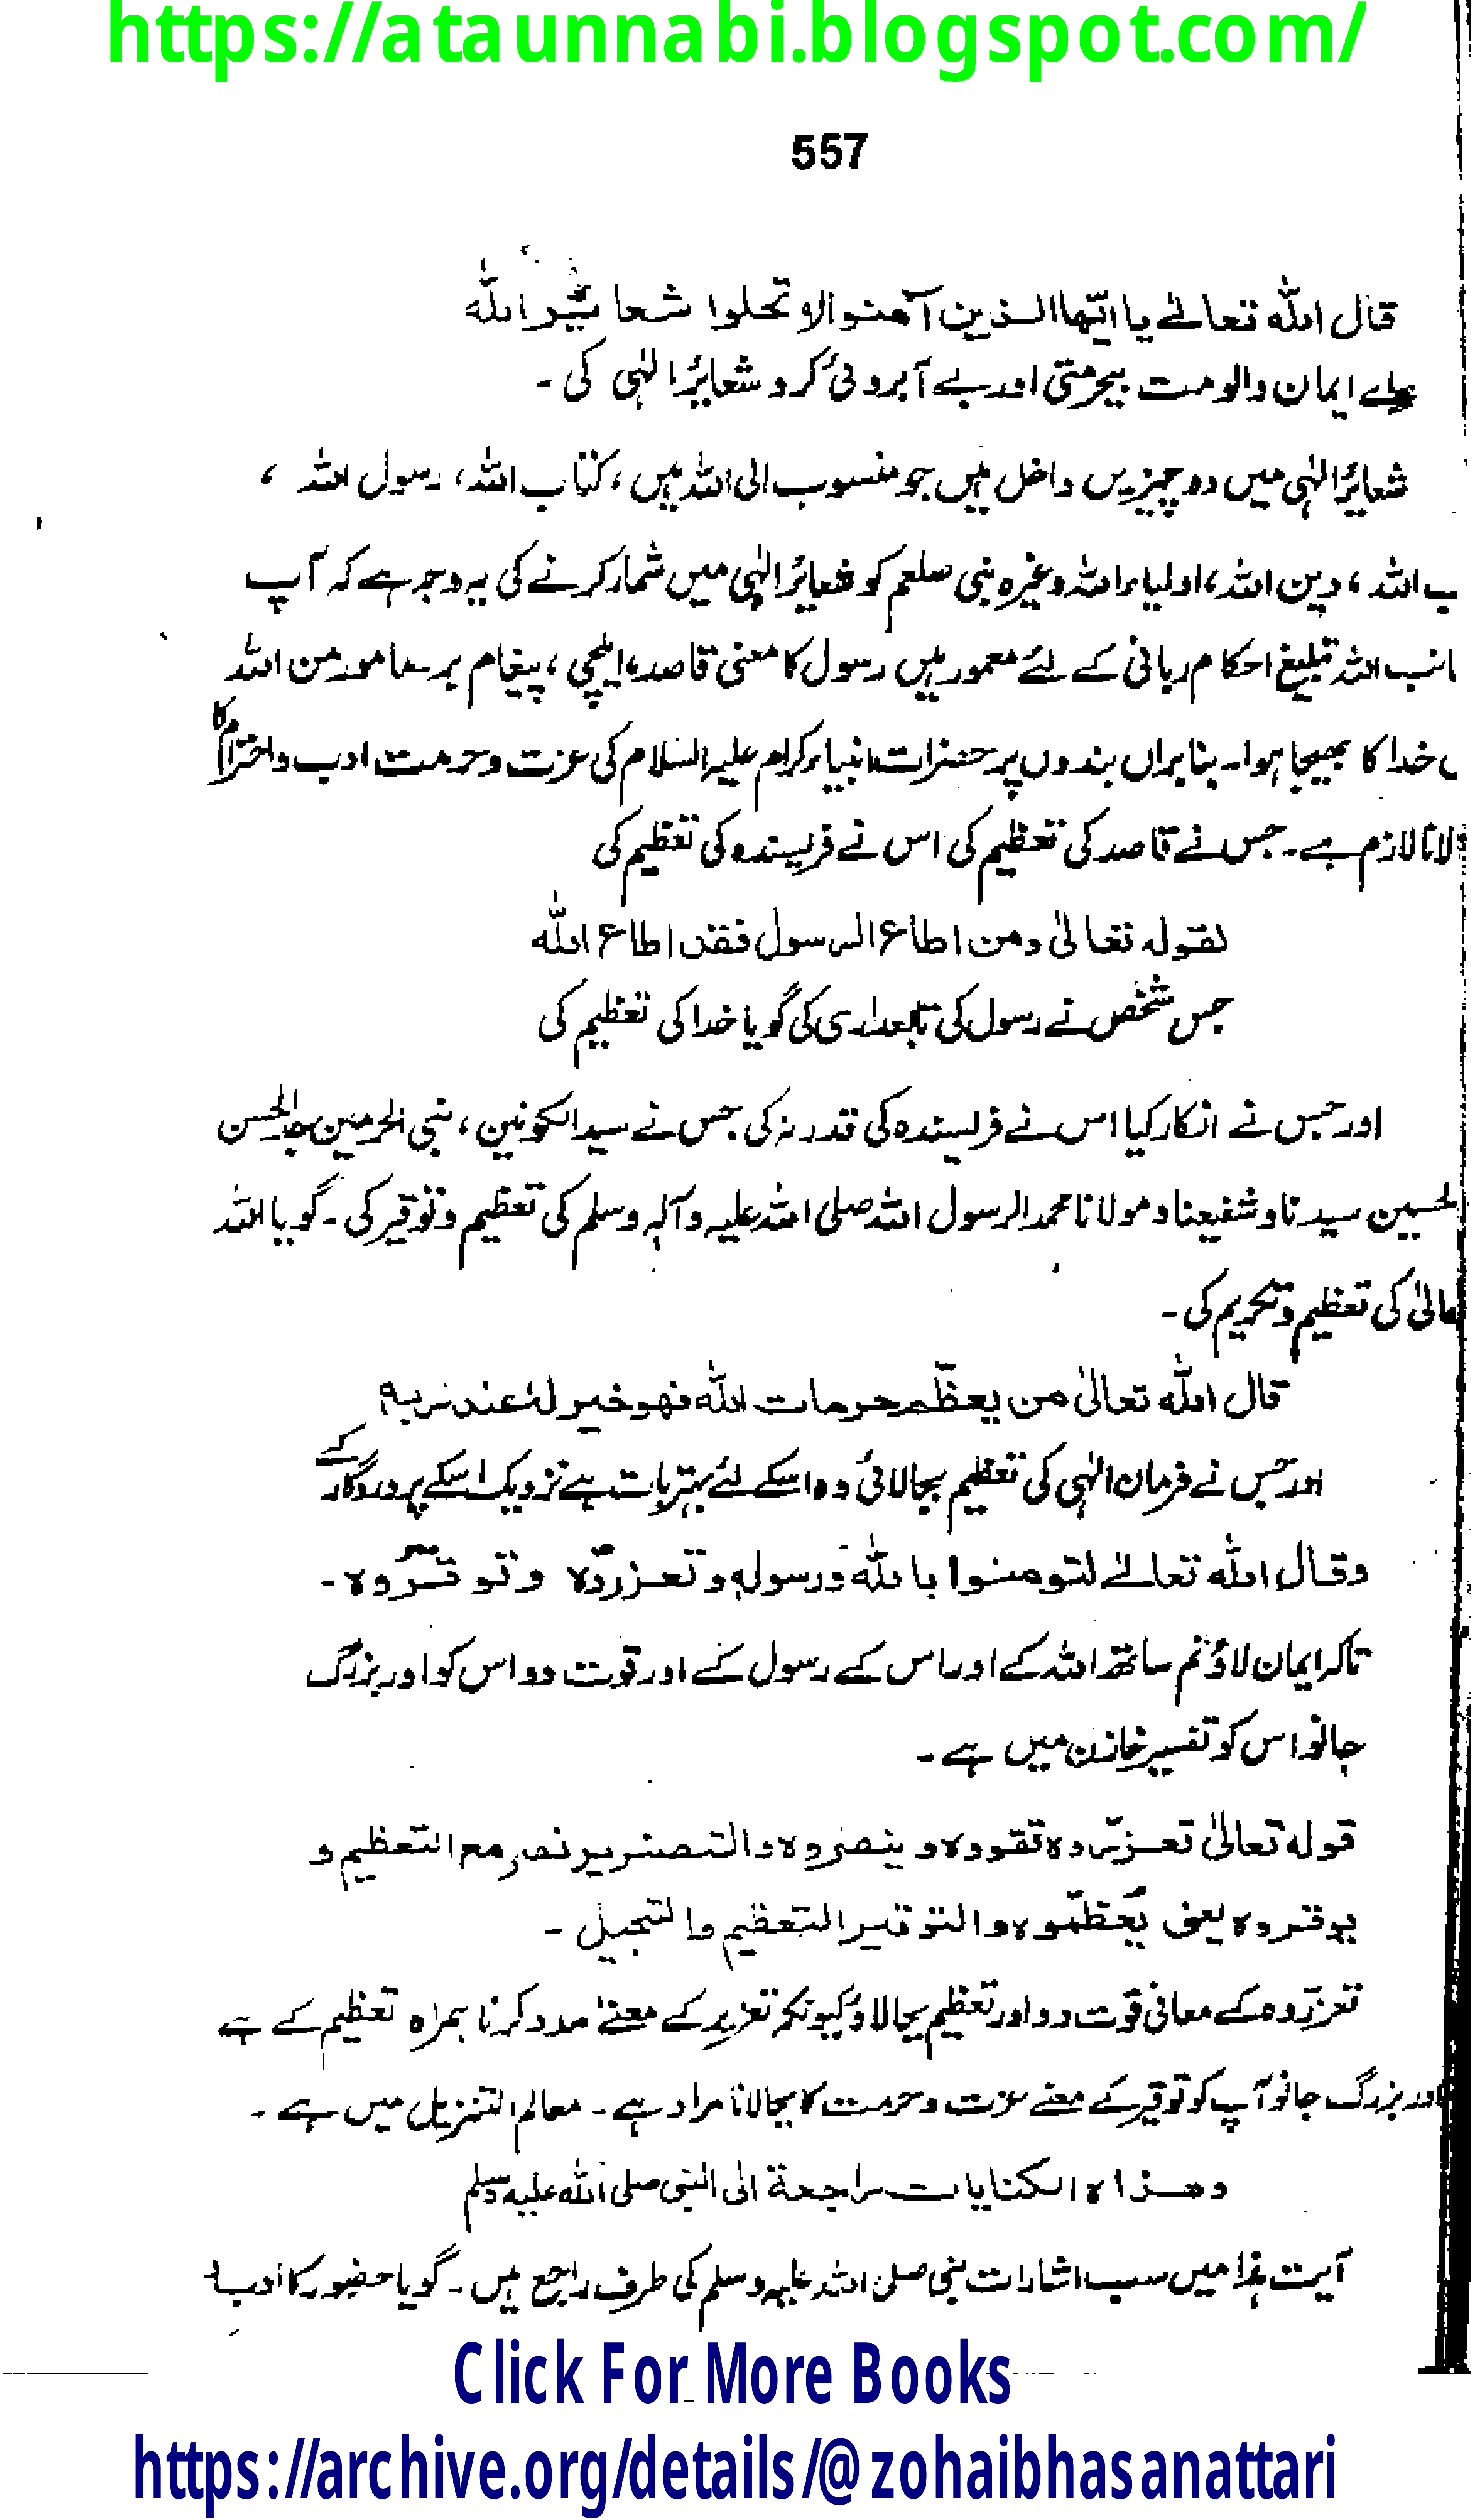 https://ataunnabi.blogspot.com/
557
قال الله تعالےٰ یا ایّھا الذین آمنوا لا تحلوا شعائیر الله
اے ایمان والو مت بیحرمتی اور بے آبروئی کرو شعائر الٰہی کی ۔
شعائر الٰہی میں وہ چیزیں داخل ہیں جو منسوب الی اللہ ہیں ، کتاب اللہ، رسول اللہ ،
ب اللہ ، دین اللہ ، اولیاء اللہ وغیرہ نبی صلعم کو شعائر الٰہی میں شمار کرنے کی یہ وجہ ہے کہ آپ
انب اللہ تبلیغ احکام ربانی کے لئے معمور ہیں رسول کا معنی قاصد ، ایلچی ، پیغام بر ۔ مامور من اللہ
خدا کا بھیجا ہوا ۔ بنابراں بندوں پر حضرات انبیاء کرام علیہ السلام کی عزت و حرمت ادب و احترام کا
لانا لازم ہے ۔ جس نے قاصد کی تعظیم کی اس نے فریسندہ کی تعظیم کی
لقوله تعالیٰ ومن اطاع الرسول فقد اطاع الله
جس شخص نے رسول کی تابعداری کی گویا خدا کی تعظیم کی
اور جس نے انکار کیا اس نے فرلسیندہ کی قدر نہ کی جس نے سید الکونین ، نبی الحرمین جد الحسن
لحسین سیدنا و شفیعنا و مولانا محمد الرسول اللہ صلی اللہ علیہ وآلہ وسلم کی تعظیم و توقیر کی ۔ گویا اللہ
عالیٰ کی تعظیم و تکریم کی ۔
قال الله تعالیٰ من یعظّم حرمات الله فھو خیر لهٗ عند ربه
اور جس نے فرمان الٰہی کی تعظیم بجالائی وہ اسکے لئے بہتر بات ہے نزدیک اسکے پروردگار کے
وقال الله تعالےٰ لتومنوا بالله ورسوله وتعزرّوہ وتوقّروہ ۔
تاکہ ایمان لاؤ تم ساتھ اللہ کے اور اس کے رسول کے اور قوت دو اس کو اور بزرگ
جانو اس کو تفسیر خازن میں ہے ۔
قوله تعالیٰ تعزّروہ تقووہ و ینصروہ والتصنریر نصر مع التعظیم و
یوقروہ یعنی یُعظمّوہ والتوقیر التعظیم والتبجیل ۔
تعزرّوہ کے معانی قوّت دو اور تعظیم بجالاؤ کیونکہ تعزیر کے معنےٰ مدد کرنا ہمراہ تعظیم کے ہے
اور بزرگ جانو آپ کو توقیر کے معنے عزت و حرمت کا بجالانا مراد ہے ۔ معالم التنزیل میں ہے ۔
وھذاہ الکنایات راجعة الی النبی صلی الله علیه وسلم
آیت ہذا میں سب اشارات نبی صلی اللہ علیہ وسلم کی طرف راجع ہیں ۔ گویا حضور کا ادب
Click For More Books
https://archive.org/details/@zohaibhasanattari